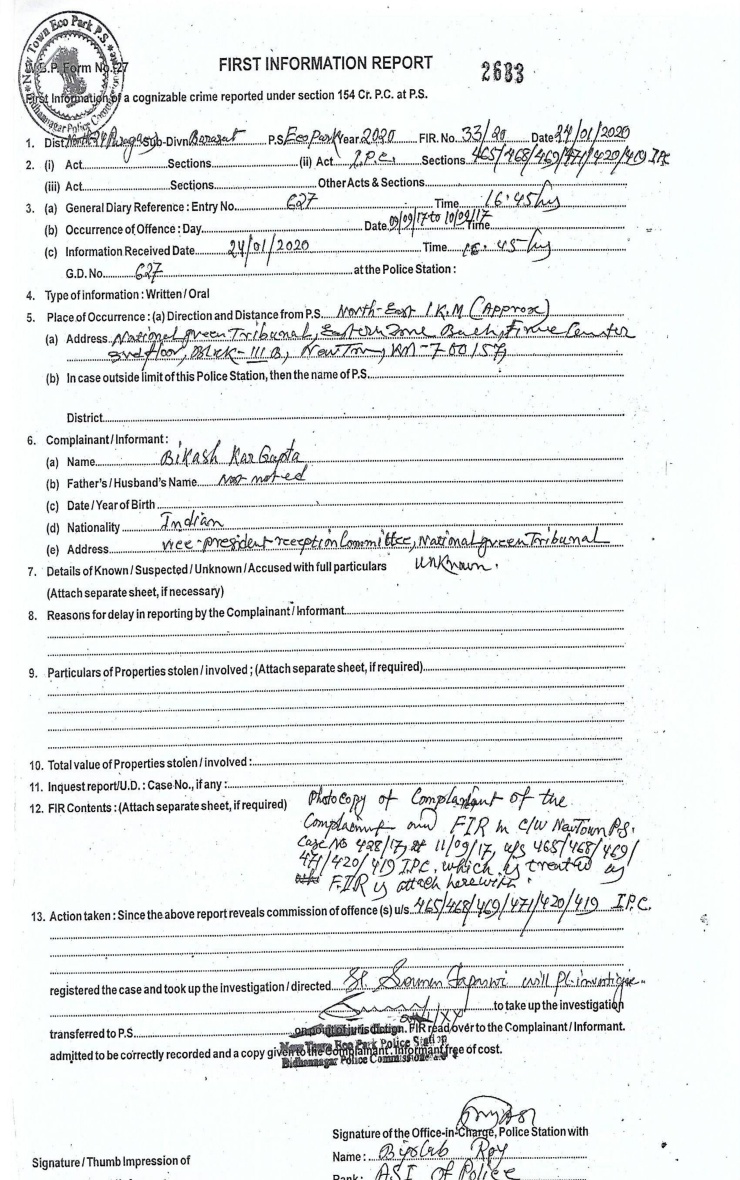 New Town Eco Park P.S.
Bidhannagar Police
W.B.P. Form No. 27
FIRST INFORMATION REPORT
2683
First Information of a cognizable crime reported under section 154 Cr. P.C. at P.S.
1. Dist. North 24 Parganas Sub-Divn. Barasat P.S. Eco Park Year 2020 FIR. No. 33/20 Date 24/01/2020
2. (i) Act Sections (ii) Act I.P.C. Sections 465/468/469/471/420/419 IPC
(iii) Act Sections Other Acts & Sections
3. (a) General Diary Reference : Entry No. 627 Time 16.45 hrs
(b) Occurrence of Offence : Day Date 09/09/17 to 10/09/17 Time
(c) Information Received Date 24/01/2020 Time 16.45 hrs
G.D. No. 627 at the Police Station :
4. Type of information : Written / Oral
5. Place of Occurrence : (a) Direction and Distance from P.S. North-East 1 K.M (Approx)
(a) Address National green Tribunal, Eastern Zone Finance Center
floor, Block - III B, New Town,
(b) In case outside limit of this Police Station, then the name of P.S.
District
6. Complainant / Informant :
(a) Name Bikash Kar Gupta
(b) Father's / Husband's Name Not noted
(c) Date / Year of Birth
(d) Nationality Indian
(e) Address vice-president reception Committee, National green Tribunal
7. Details of Known / Suspected / Unknown / Accused with full particulars Unknown.
(Attach separate sheet, if necessary)
8. Reasons for delay in reporting by the Complainant / Informant
9. Particulars of Properties stolen / involved ; (Attach separate sheet, if required)
10. Total value of Properties stolen / involved :
11. Inquest report / U.D. : Case No., if any :
12. FIR Contents : (Attach separate sheet, if required) Photo copy of of the
and FIR in C/W New Town P.S.
Case No 428/17 dt 11/09/17, u/s 465/468/469/
471/420/419 I.P.C. which is treated as
F.I.R is attach herewith.
13. Action taken : Since the above report reveals commission of offence (s) u/s. 465/468/469/471/420/419 I.P.C.
registered the case and took up the investigation / directed SI Soumen will Pl. investigate
to take up the investigation
transferred to P.S. on point of jurisdiction. FIR read over to the Complainant / Informant.
admitted to be correctly recorded and a copy given to the Complainant. Informant free of cost.
New Town Eco Park Police Station
Bidhannagar Police Commissionerate
Signature of the Office-in-Charge, Police Station with
Name : Biplab Roy
Signature / Thumb Impression of
Rank : ASI of Police